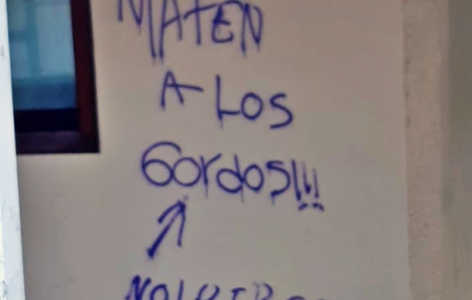 MATEN
A LOS
Gordos!!!